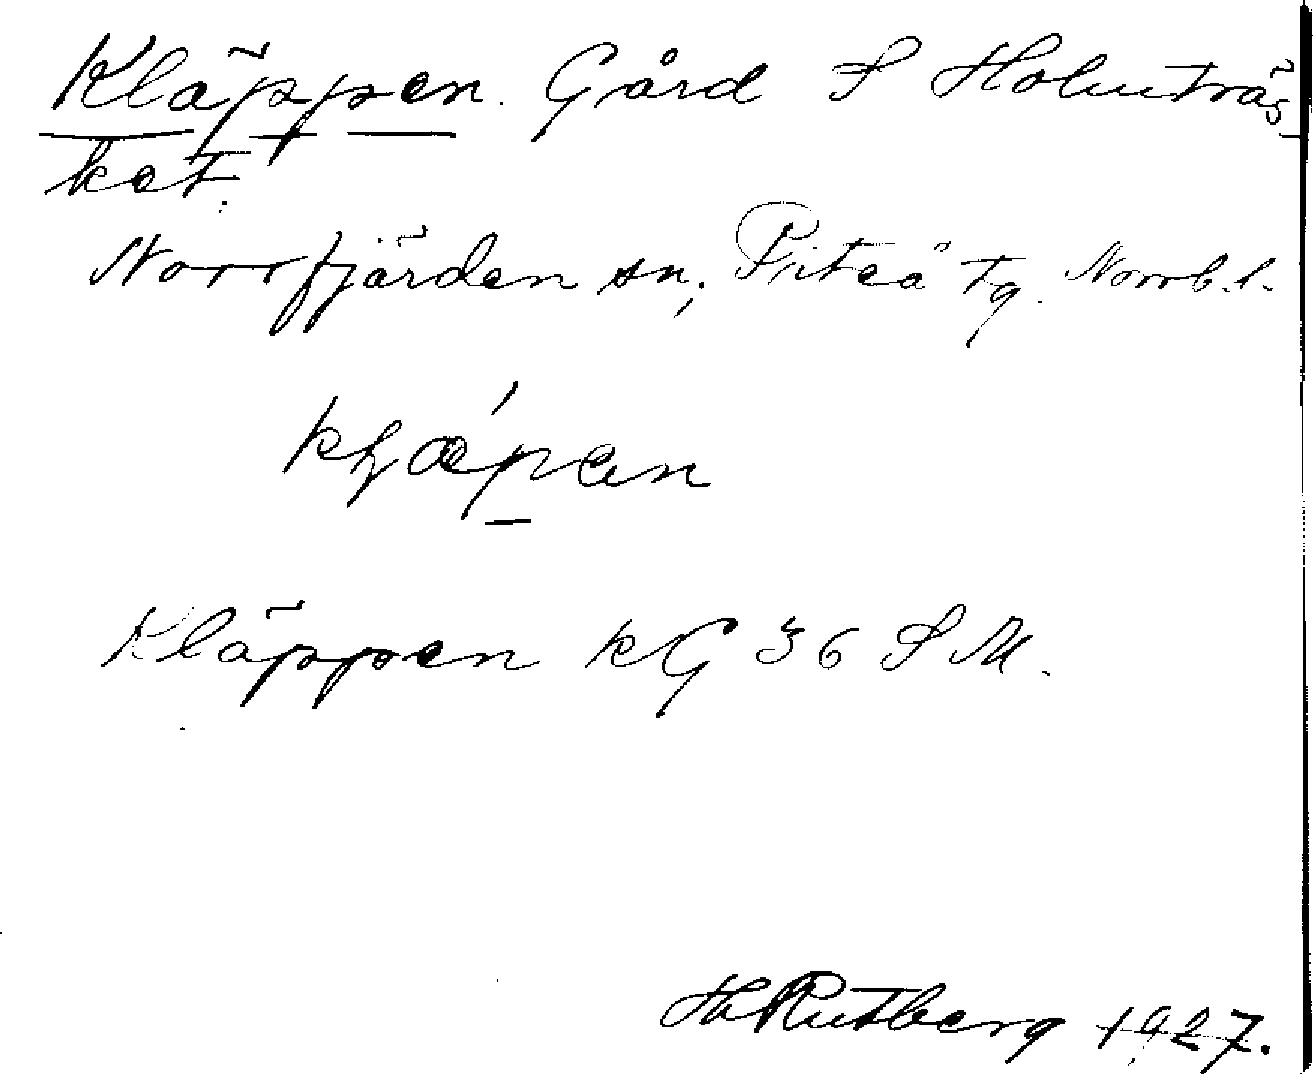 Kläppen. Gård S Holmträs
ket.
Norrfjärden sn, Piteå tg. Norrb. l.
Kläppen kG 36 S M.
H Rutberg 1927.